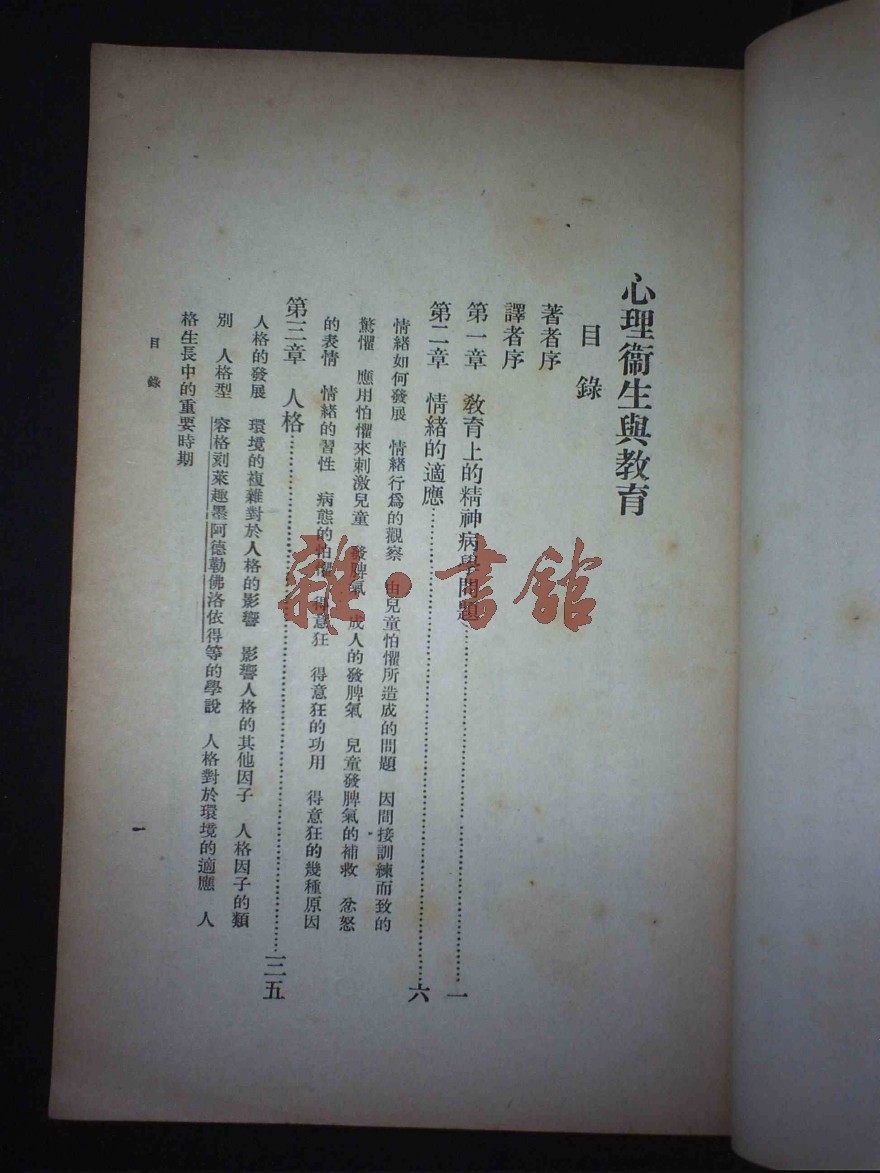 心理衞生與教育
目錄
著者序
譯者序
第一章 教育上的精神病學問題 一
第二章 情緒的適應 六
情緒如何發展 情緒行爲的觀察 由兒童怕懼所造成的問題 因間接訓練而致的
驚懼 應用怕懼來刺激兒童 發脾氣 成人的發脾氣 兒童發脾氣的補救 忿怒
的表情 情緒的習性 病態的怕懼 得意狂 得意狂的功用 得意狂的幾種原因
第三章 人格 三五
人格的發展 環境的複雜對於人格的影響 影響人格的其他因子 人格因子的類
別 人格型 容格刻萊趣墨阿德勒佛洛依得等的學說 人格對於環境的適應 人
格生長中的重要時期
目錄
一
雜·書館